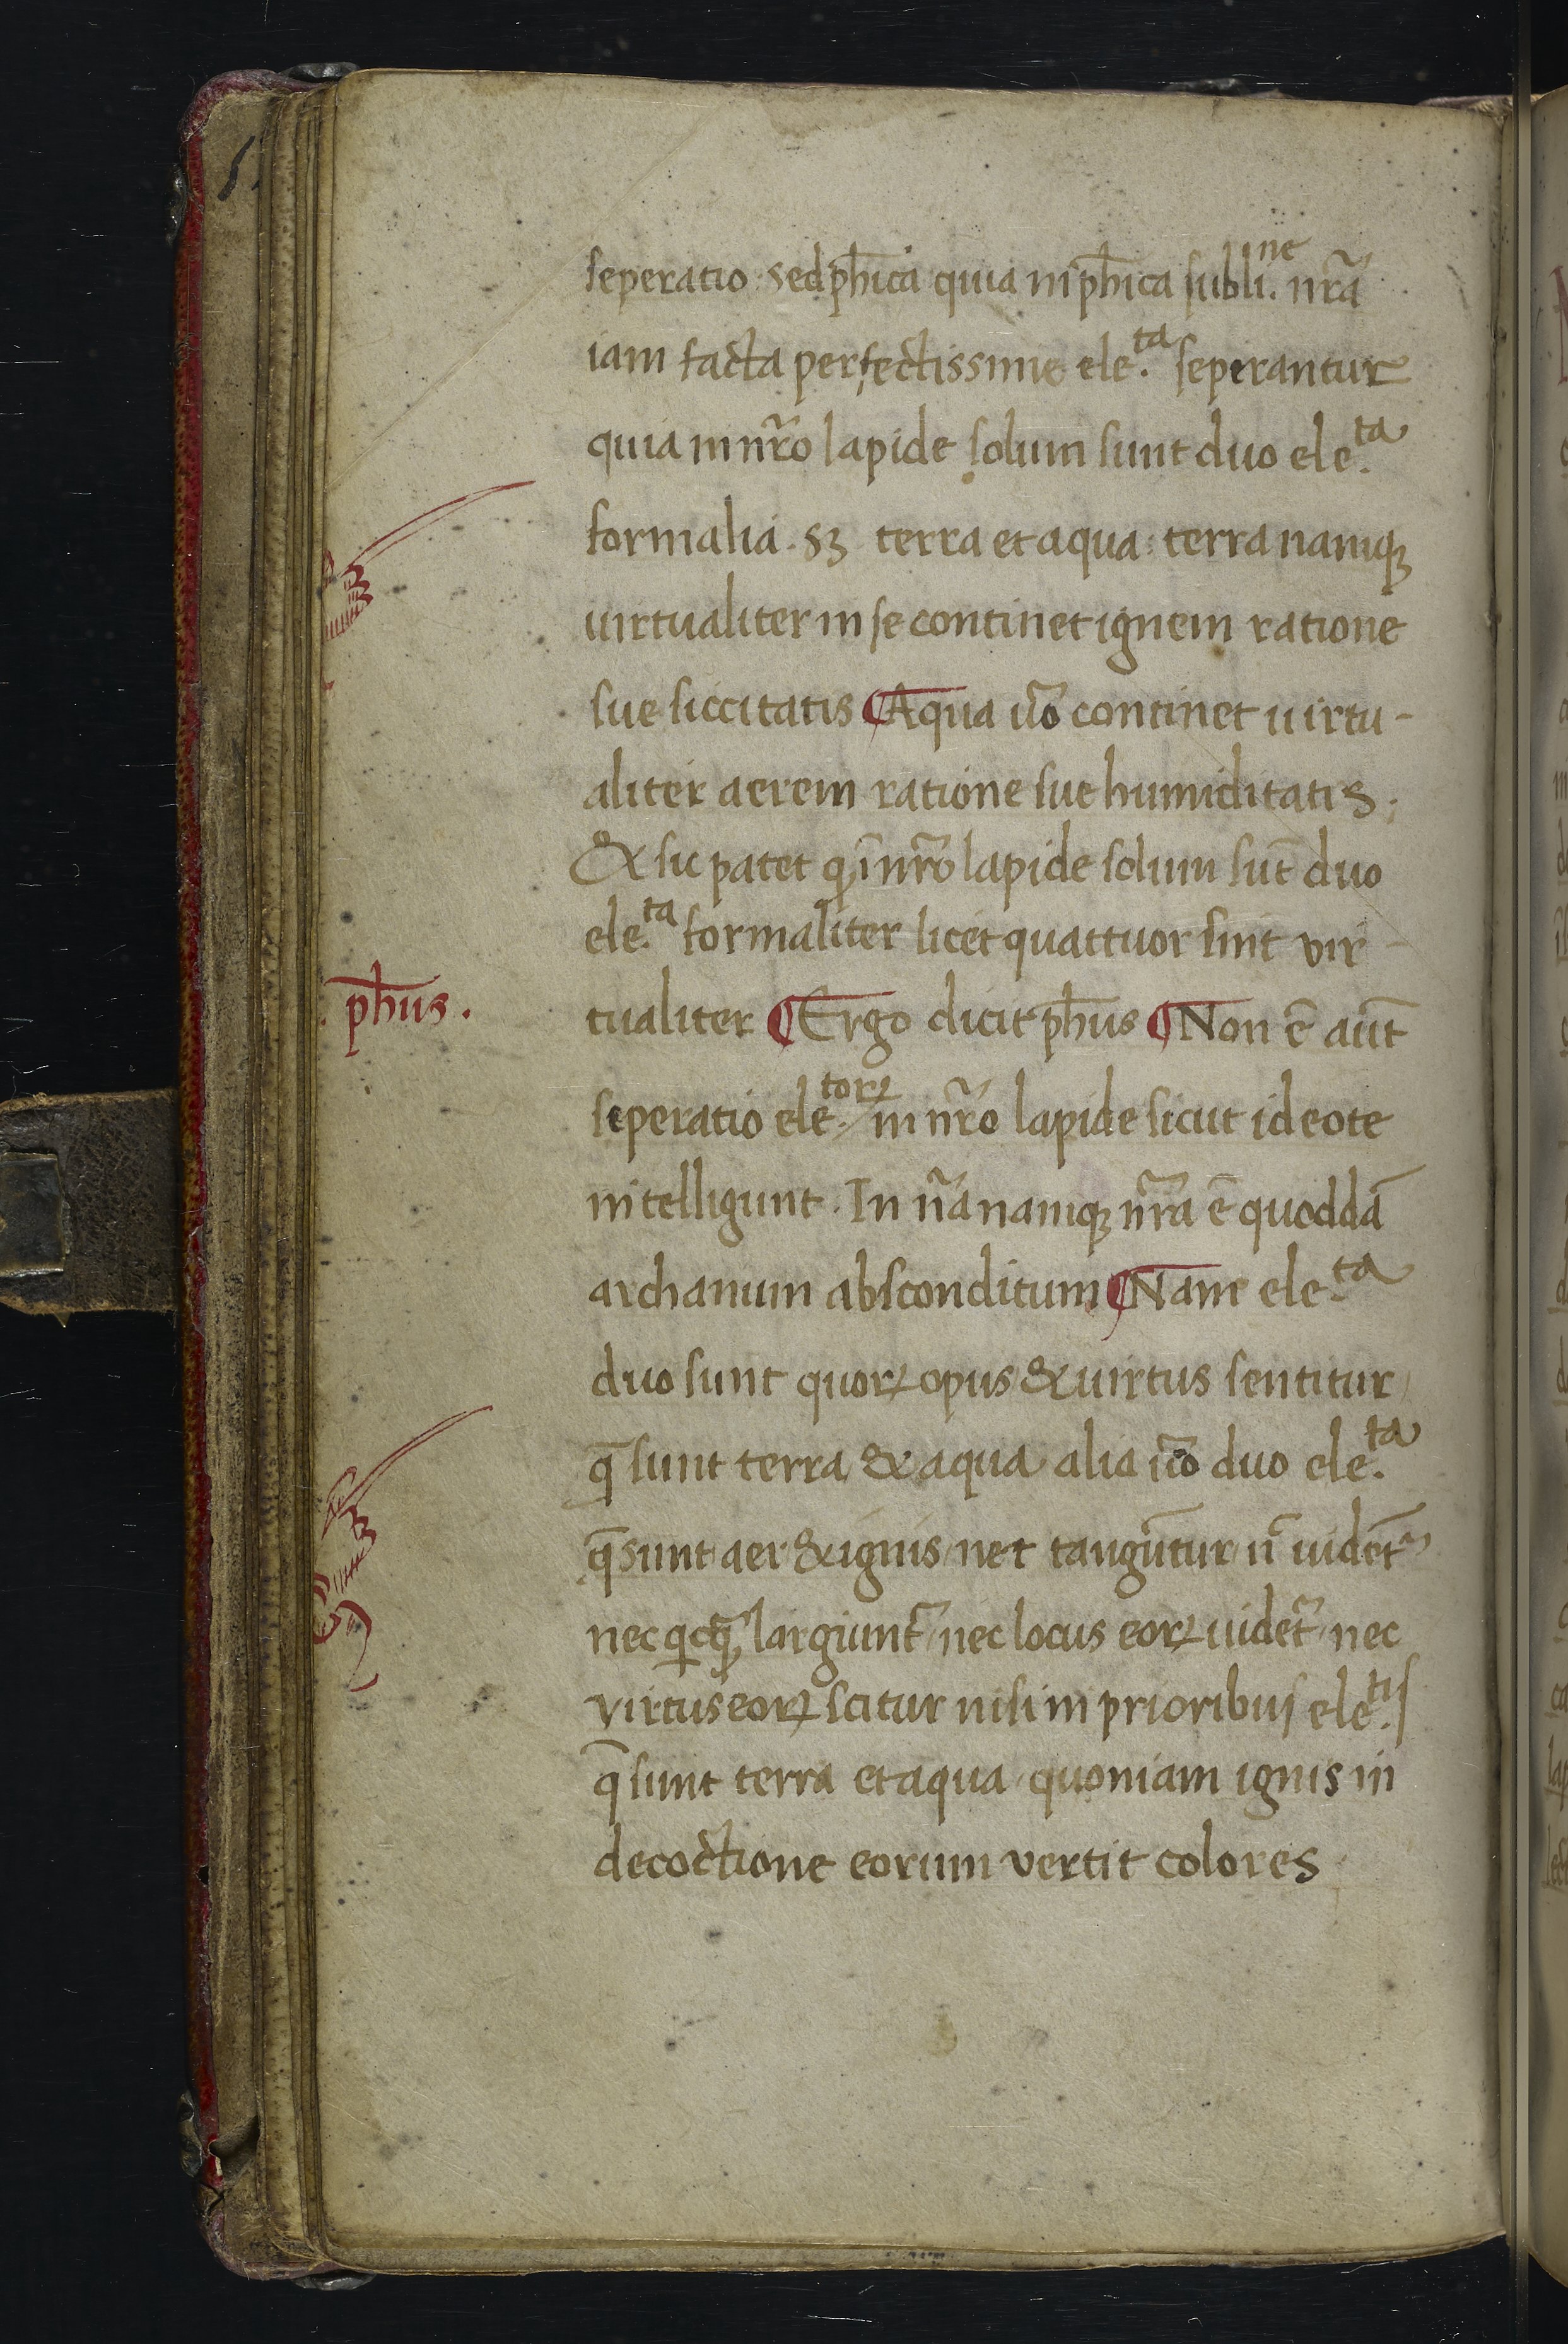 seperatio sed ph̄ica quia in ph̄ica subli.ⁿᵉ nr̃a
iam facta perfectissime ele.ᵗᵃ seperantur
quia in nr̃o lapide solum sunt duo ele.ᵗᵃ
formalia. sꝫ terra et aqua: terra namqꝫ
uirtualiter in se continet ignem ratione
sue siccitatis ¶ Aqua ũo continet uirtu-
aliter aerem ratione sue humiditatis.
& sic patet ꝙ ĩ nr̃o lapide solum sũt duo
ele.ᵗᵃ formaliter licet quattuor sint vir-
. ph̄us.
tualiter ¶ Ergo dicit ph̄us ¶ Non ē aũt
seperatio ele.ᵗᵒʳꝝ in nr̃o lapide sicut ideote
intelligunt. In ñã namqꝫ nr̃a ē quoddã
archanum absconditum ¶ Nam ele.ᵗᵃ
duo sunt quoꝝ opus & uirtus sentitur
q̄ sunt terra & aqua alia ũo duo ele.ᵗᵃ
q̄ sunt aer & ignis nec tangũtur ñ uidẽt᷑
nec largiunt᷑ nec locus eoꝝ uidet᷑ nec
virtus eoꝝ scitur nisi in prioribus ele.ᵗⁱˢ
q̄ sunt terra et aqua quoniam ignis in
decoctione eorum vertit colores